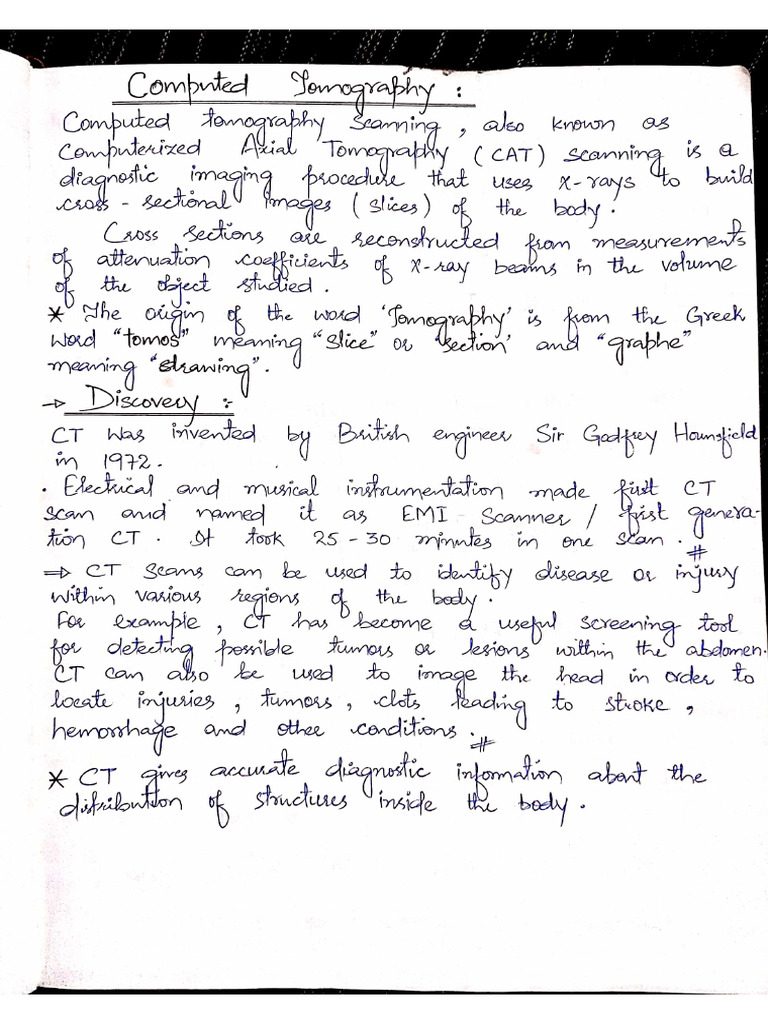 Computed Tomography :
Computed tomography scanning, also known as
Computerized Axial Tomography (CAT) scanning is a
diagnostic imaging procedure that uses x-rays to build
cross-sectional images (slices) of the body.
Cross sections are reconstructed from measurements
of attenuation coefficients of x-ray beams in the volume
of the object studied.
* The origin of the word 'Tomography' is from the Greek
word "tomos" meaning "slice" or 'section' and "graphe"
meaning "drawing".
→ Discovery :-
CT was invented by British engineer Sir Godfrey Hounsfield
in 1972.
. Electrical and musical instrumentation made first CT
scan and named it as EMI Scanner / first genera-
tion CT. It took 25-30 minutes in one scan. #
⇒ CT scans can be used to identify disease or injury
within various regions of the body.
For example, CT has become a useful screening tool
for detecting possible tumors or lesions within the abdomen.
CT can also be used to image the head in order to
locate injuries, tumors, clots leading to stroke,
hemorrhage and other conditions. #
* CT gives accurate diagnostic information about the
distribution of structures inside the body.